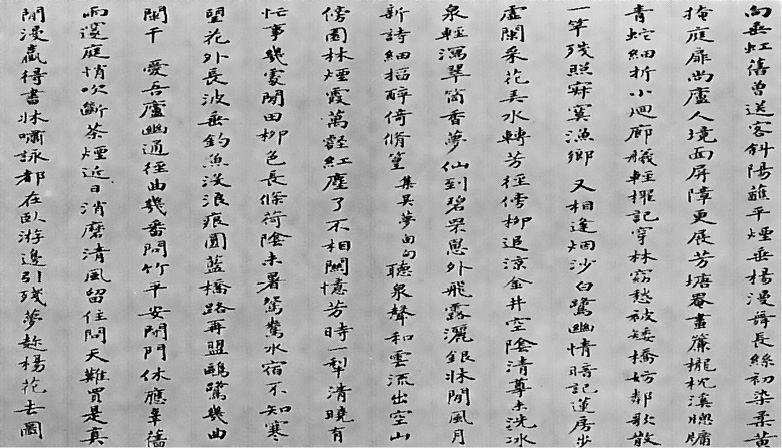 向垂虹舊曾送客斜陽蘸平煙垂楊漫舞長絲初染柔黃
掩庭扉尚廬人境面屏障更展芳塘罨畫簾櫳枕溪牕牖
青蛇細折小迴廊艤輕櫂記穿林窈愁被矮橋妨鄰歌散
一竿殘照寂寞漁鄉　又相逢烟沙白鷺幽情暗記蓮房步
虛闌采花弄水轉芳徑傍柳追涼金井空陰清尊未洗冰
泉輕瀉翠筒香夢仙到碧罘罳外飛露灑銀牀閒風月
新詩細搯醉倚脩篁　集吳夢窗句聽泉聲和雲流出空山
傍園林煙霞萬壑紅塵了不相關憶芳時一犁清曉有
忙事幾處閒田柳色長條荷陰未暑鴛鴦水宿不知寒
望花外長波垂釣魚沒浪痕圓藍橋路再盟鷗鷺幾曲
闌干　愛吾廬幽通徑曲幾番問竹平安閑門休應車舊
雨邃庭悄吹斷茶煙近日消磨清風留住問天難買是真
閒漫贏得書牀嘯詠都在臥游邊引殘夢趂楊花去圖